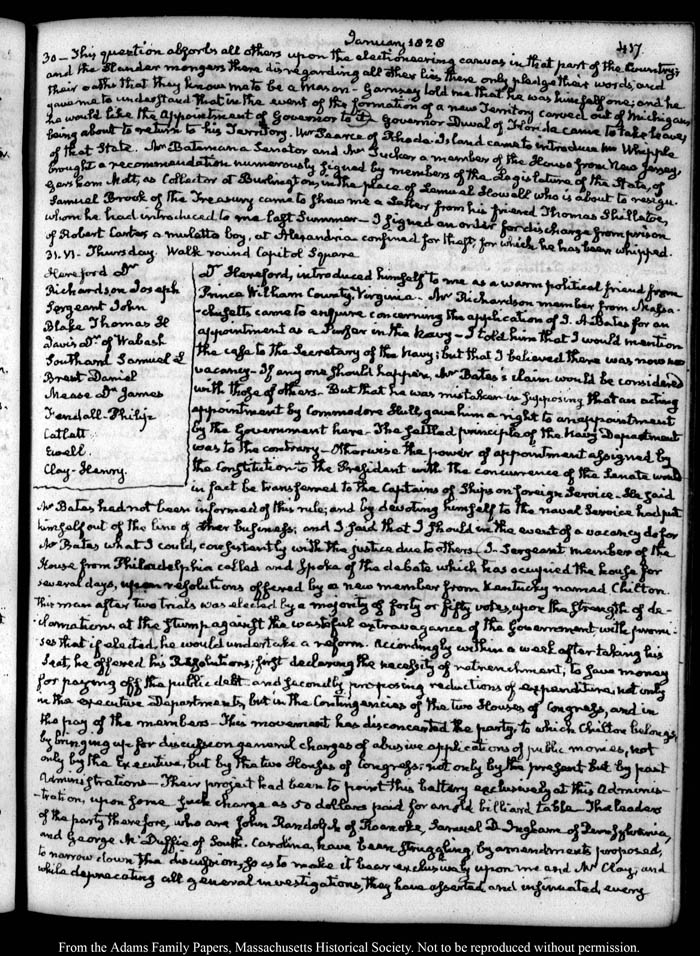 January 1828
417
30 — This question absorbs all others upon the electioneering canvas in that part of the Country;
and the slander mongers there disregarding all other lies there only pledge their words, and
their oaths that they know me to be a mason — Garnsey told me that he was himself one; and he
gave me to understand that in the event of the formation of a new Territory carved out of Michigan
he would like the appointment of Governor to it. Governor Duval of Florida came to take leave,
being about to return to his Territory. Mr Pearce of Rhode-Island came to introduce Mr Whipple
of that State. Mr Bateman a Senator and Mr Tucker a member of the House from New Jersey,
brought a recommendation numerously signed by members of the Legislature of the State, of
Gershom Mott, as Collector at Burlington, in the place of Samuel Howell who is about to resign.
Samuel Brook of the Treasury came to shew me a Letter from his friend Thomas Phillatoe,
whom he had introduced to me last Summer — I signed an order for discharge from prison
of Robert Carter a mulatto boy, at Alexandria confined for theft, for which he has been whipped.
31. VI. Thursday. Walk round Capitol Square
Hereford Dr
Richardson Joseph
Sergeant John
Blake Thomas H
Davis Dr of Wabash
Southard Samuel L
Brent Daniel
Mease Dr James
Fendall Philip
Catlett
Ewell
Clay Henry
Dr Hereford, introduced himself to me as a warm political friend from
Prince William County, Virginia. Mr Richardson member from Massa-
-chusetts, came to enquire concerning the application of I. A. Bates for an
appointment as a Purser in the Navy — I told him that I would mention
the case to the Secretary of the Navy; but that I believed there was now no
vacancy — If any one should happen, Mr Bates's claim would be considered
with those of others. But that he was mistaken in supposing that an acting
appointment by Commodore Hull, gave him a right to an appointment
by the Government here. The settled principle of the Navy Department
was to the contrary — Otherwise the power of appointment assigned by
the Constitution to the President with the concurrence of the Senate would
in fact be transferred to the Captains of Ships on foreign service. He said
Mr Bates had not been informed of this rule; and by devoting himself to the naval service had put
himself out of the line of other business; and I said that I should in the event of a vacancy do for
Mr Bates what I could, consistently with the justice due to others. J. Sergeant member of the
House from Philadelphia called and spoke of the debate which has occupied the house for
several days, upon resolutions offered by a new member from Kentucky named Chilton.
This man after two trials was elected by a majority of forty or fifty votes, upon the strength of de-
clamations at the stump against the wasteful extravagance of the Government with promi-
ses that if elected he would undertake a reform. Accordingly within a week after taking his
Seat, he offered his Resolutions; first declaring the necessity of retrenchment, to save money
for paying off the public debt and secondly, proposing reductions of expenditure, not only
in the executive Departments, but in the Contingencies of the two Houses of Congress, and in
the pay of the members — This movement has disconcerted the party, to which Chilton belongs,
by bringing up for discussion general charges of abusive applications of public monies, not
only by the Executive, but by the two Houses of Congress: not only by the present but by past
Administrations — Their project had been to point this battery exclusively at this Adminis-
-tration, upon some such charge as 50 dollars paid for an old billiard table. The leaders
of the party therefore, who are John Randolph of Roanoke, Samuel D. Ingham of Pennsylvania,
and George McDuffie of South-Carolina, have been struggling, by amendments proposed,
to narrow down the discussion, so as to make it bear exclusively upon me and Mr Clay, and
while deprecating all general investigations, they have asserted and insinuated, every
From the Adams Family Papers, Massachusetts Historical Society. Not to be reproduced without permission.